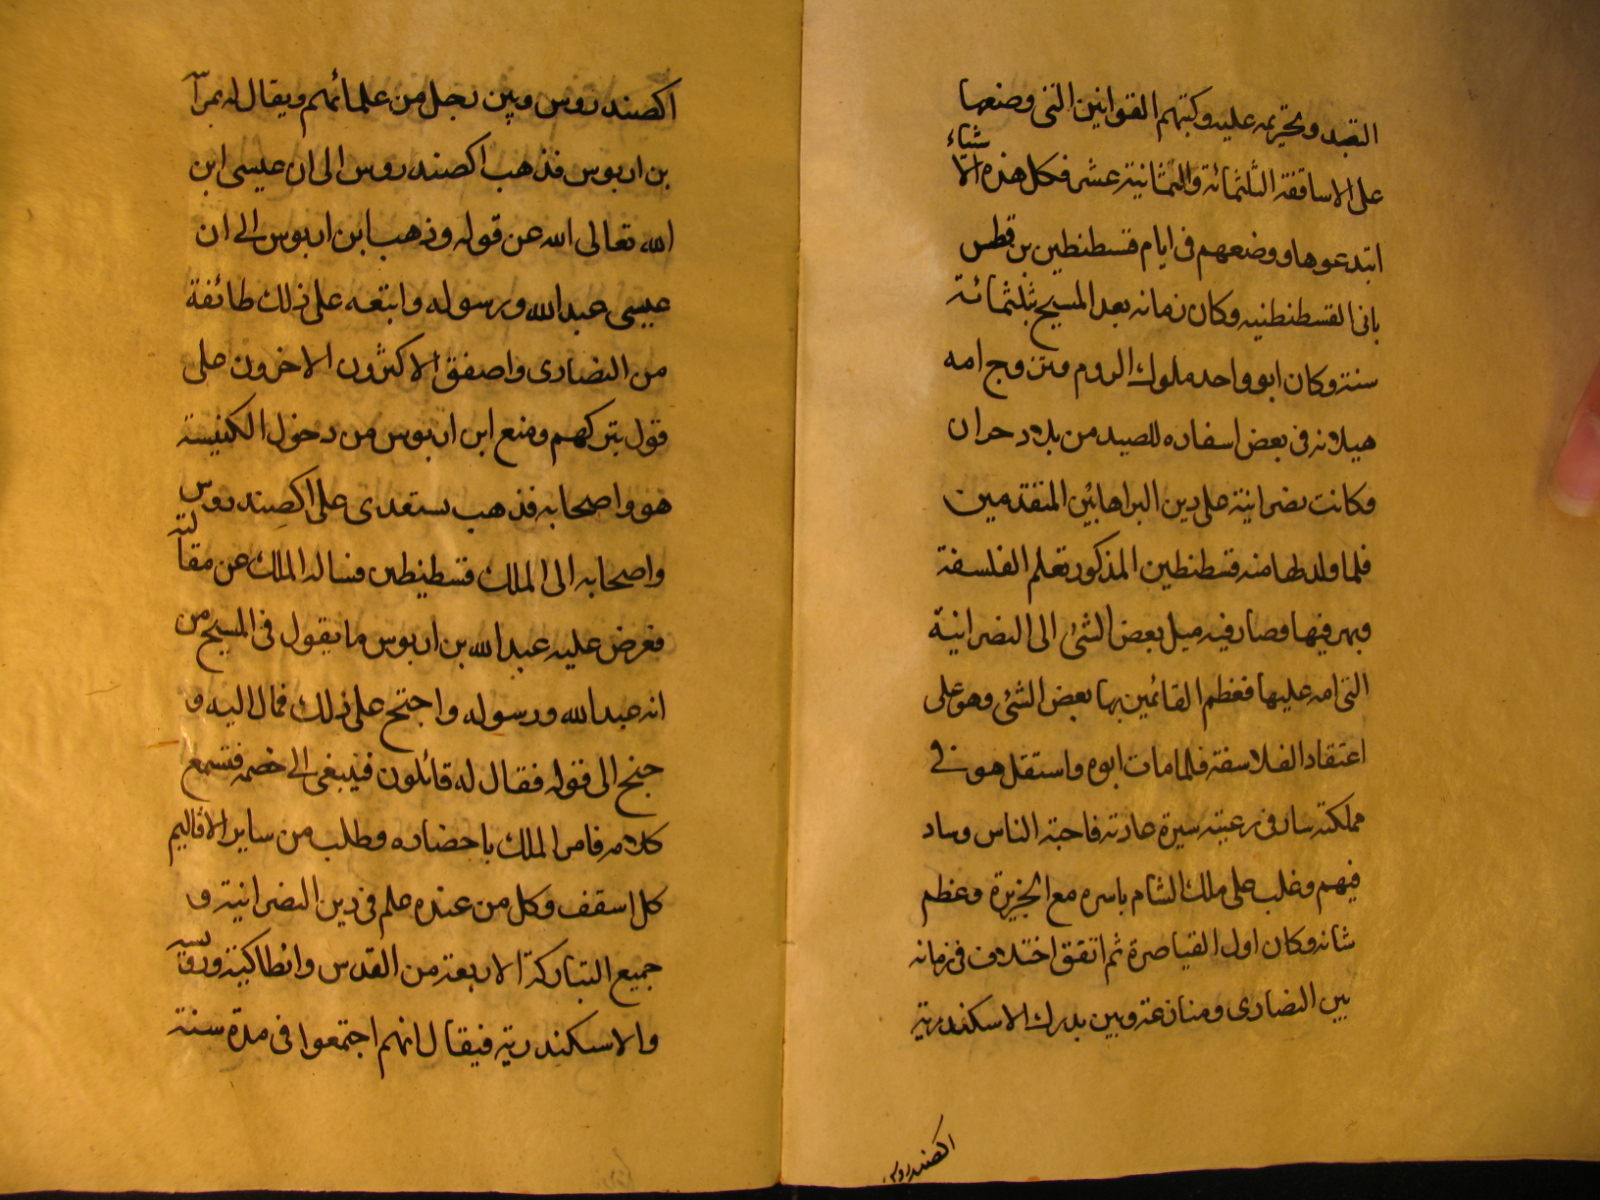 التعبد وتحريمه عليه وكتبهم القوانين التى وضعها
على الاساقفة الثلثمائة والثمانية عشر فكل هذه الاشياء
ابتدعوها ووضعهم فى ايام قسطنطين بن قطس
بانى القسطنطنيه وكان زمانه بعد المسيح بثلثمائة
سنة وكان ابو واحد ملوك الروم وتزوج امه
هيلانه فى بعض اسفاره للصيد من بلاد حران
وكانت نصرانية على دين الراهابين المتقدمين
فلما ولد لها منه قسطنطين المذكور تعلم الفلسفة
وبهر فيها وصار فيه ميل بعض الشئ الى النصرانية
التى امه عليها فعظم القائمين بها بعض الشئ وهو على
اعتقاد الفلاسفة فلما مات ابوه واستقل هو فى
مملكته سار فى رعيته سيرة عادته فاحبه الناس وساد
فيهم وغلب على ملك الشام باسره مع الجزيرة وعظم
شانه وكان اول القياصرة ثم اتفق اختلاف فى زمانه
بين النصارى ومنازعة وبين بدرك الاسكندرية
اكصندروس
اكصندروس وبين رجل من علمائهم ويقال له
بن اريوس فذهب اكصندروس الى ان عيسى ابن
الله تعالى الله عن قوله وذهب ابن اريوس الى ان
عيسى عبد الله ورسوله واتبعه على ذلك طائفة
من النصارى واصفق الاكثرون الاخرون على
قول بتركهم ومنع ابن اريوس من دخول الكنيسة
هو واصحابه فذهب يستعدى على اكصندروس
واصحابه الى الملك قسطنطين فساله الملك عن مقالته
فعرض عليه عبد الله بن اريوس ما يقول فى المسيح من
انه عبد الله ورسوله واحتج على ذلك فمال اليه و
جنح الى قوله فقال له قائلون فينبغى الى خصمه فتسمع
كلامه فامر الملك باحضاره وطلب من ساير الاقاليم
كل اسقف وكل من عنده علم فى دين النصرانية و
جميع البتاركة الاربعة من القدس وانطاكية ورومية
والاسكندرية فيقال انهم اجتمعوا فى مدة سنة